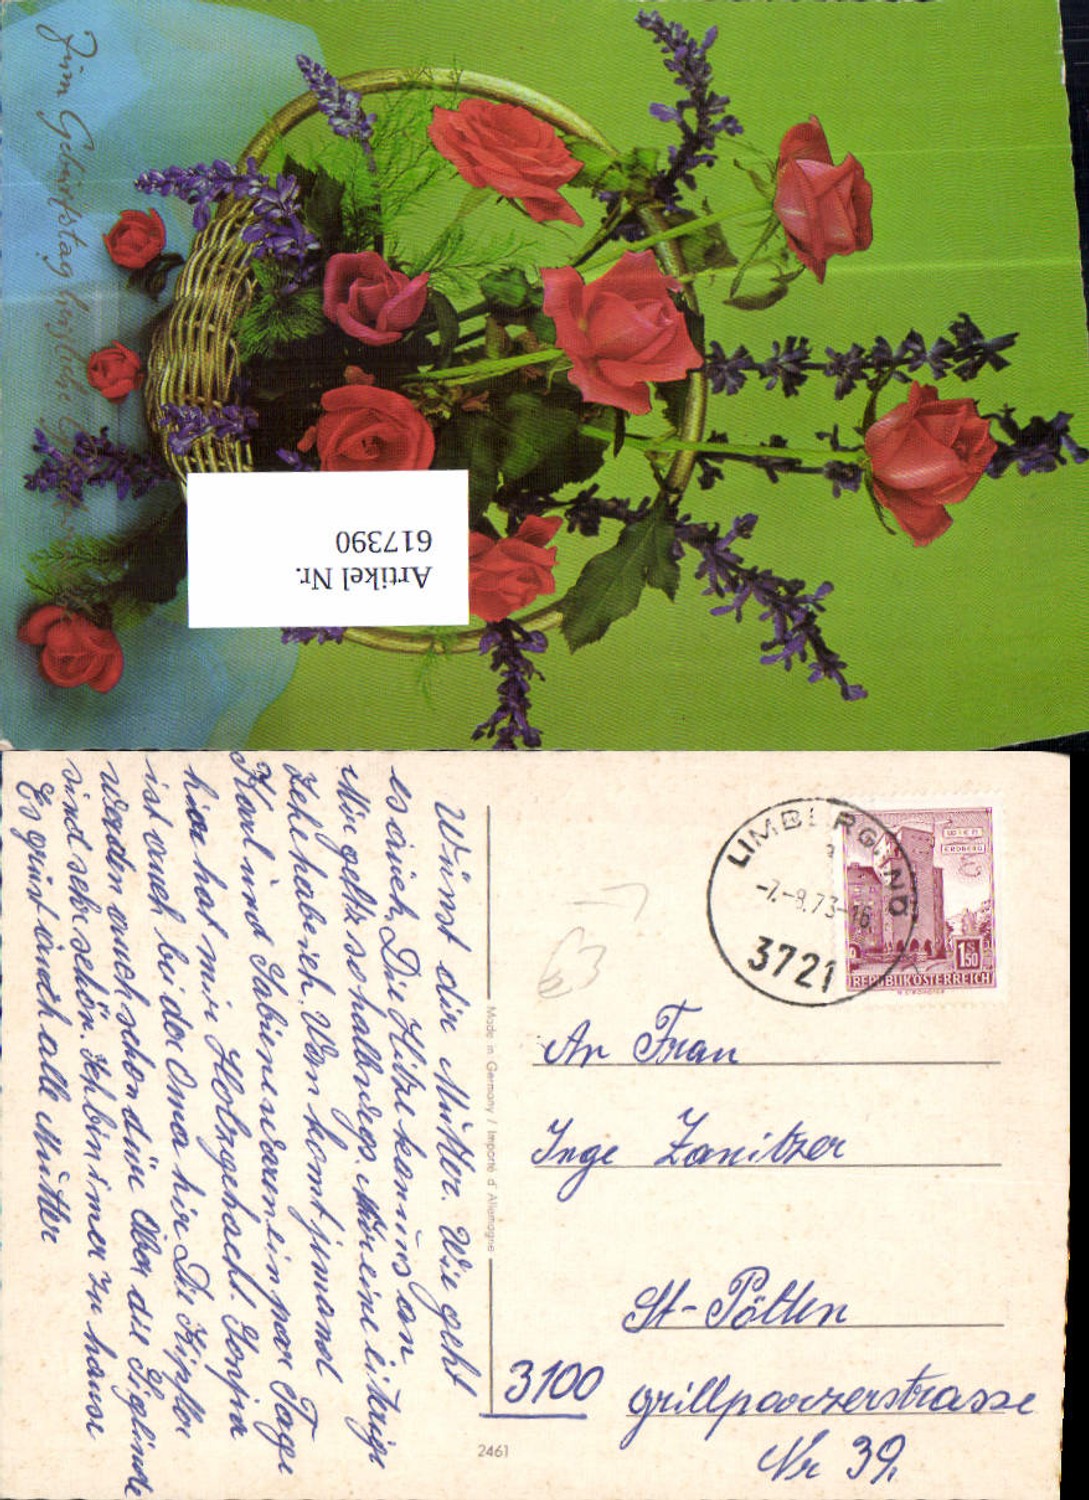 Zum Geburtstag herzliche
Artikel Nr.
617390
Wünst dir Mutter. Wie geht
es euch, Die Hitze kan uns an
Mir geths so halbwegs.
Zehe habe ich. Wan komt jemand
Karl und Sabine waren ein par Tage
hier hat mir Holz gehackt. Sonja
ist auch bei der Oma hir. Die Kipfler
werden auch schon dür Aber die Siglinde
sind sehr schön. Ich bin imer zu hause
Es grüst euch alle Mutter
Made in Germany / Importé d'Allemagne
2461
LIMBERG
-7.-8.73-16
3721
WIEN
ERDBERG
1.50
REPUBLIK ÖSTERREICH
An Frau
Inge Zanitzer
St-Pölten
3100 grillparzerstrasse
Nr 39.